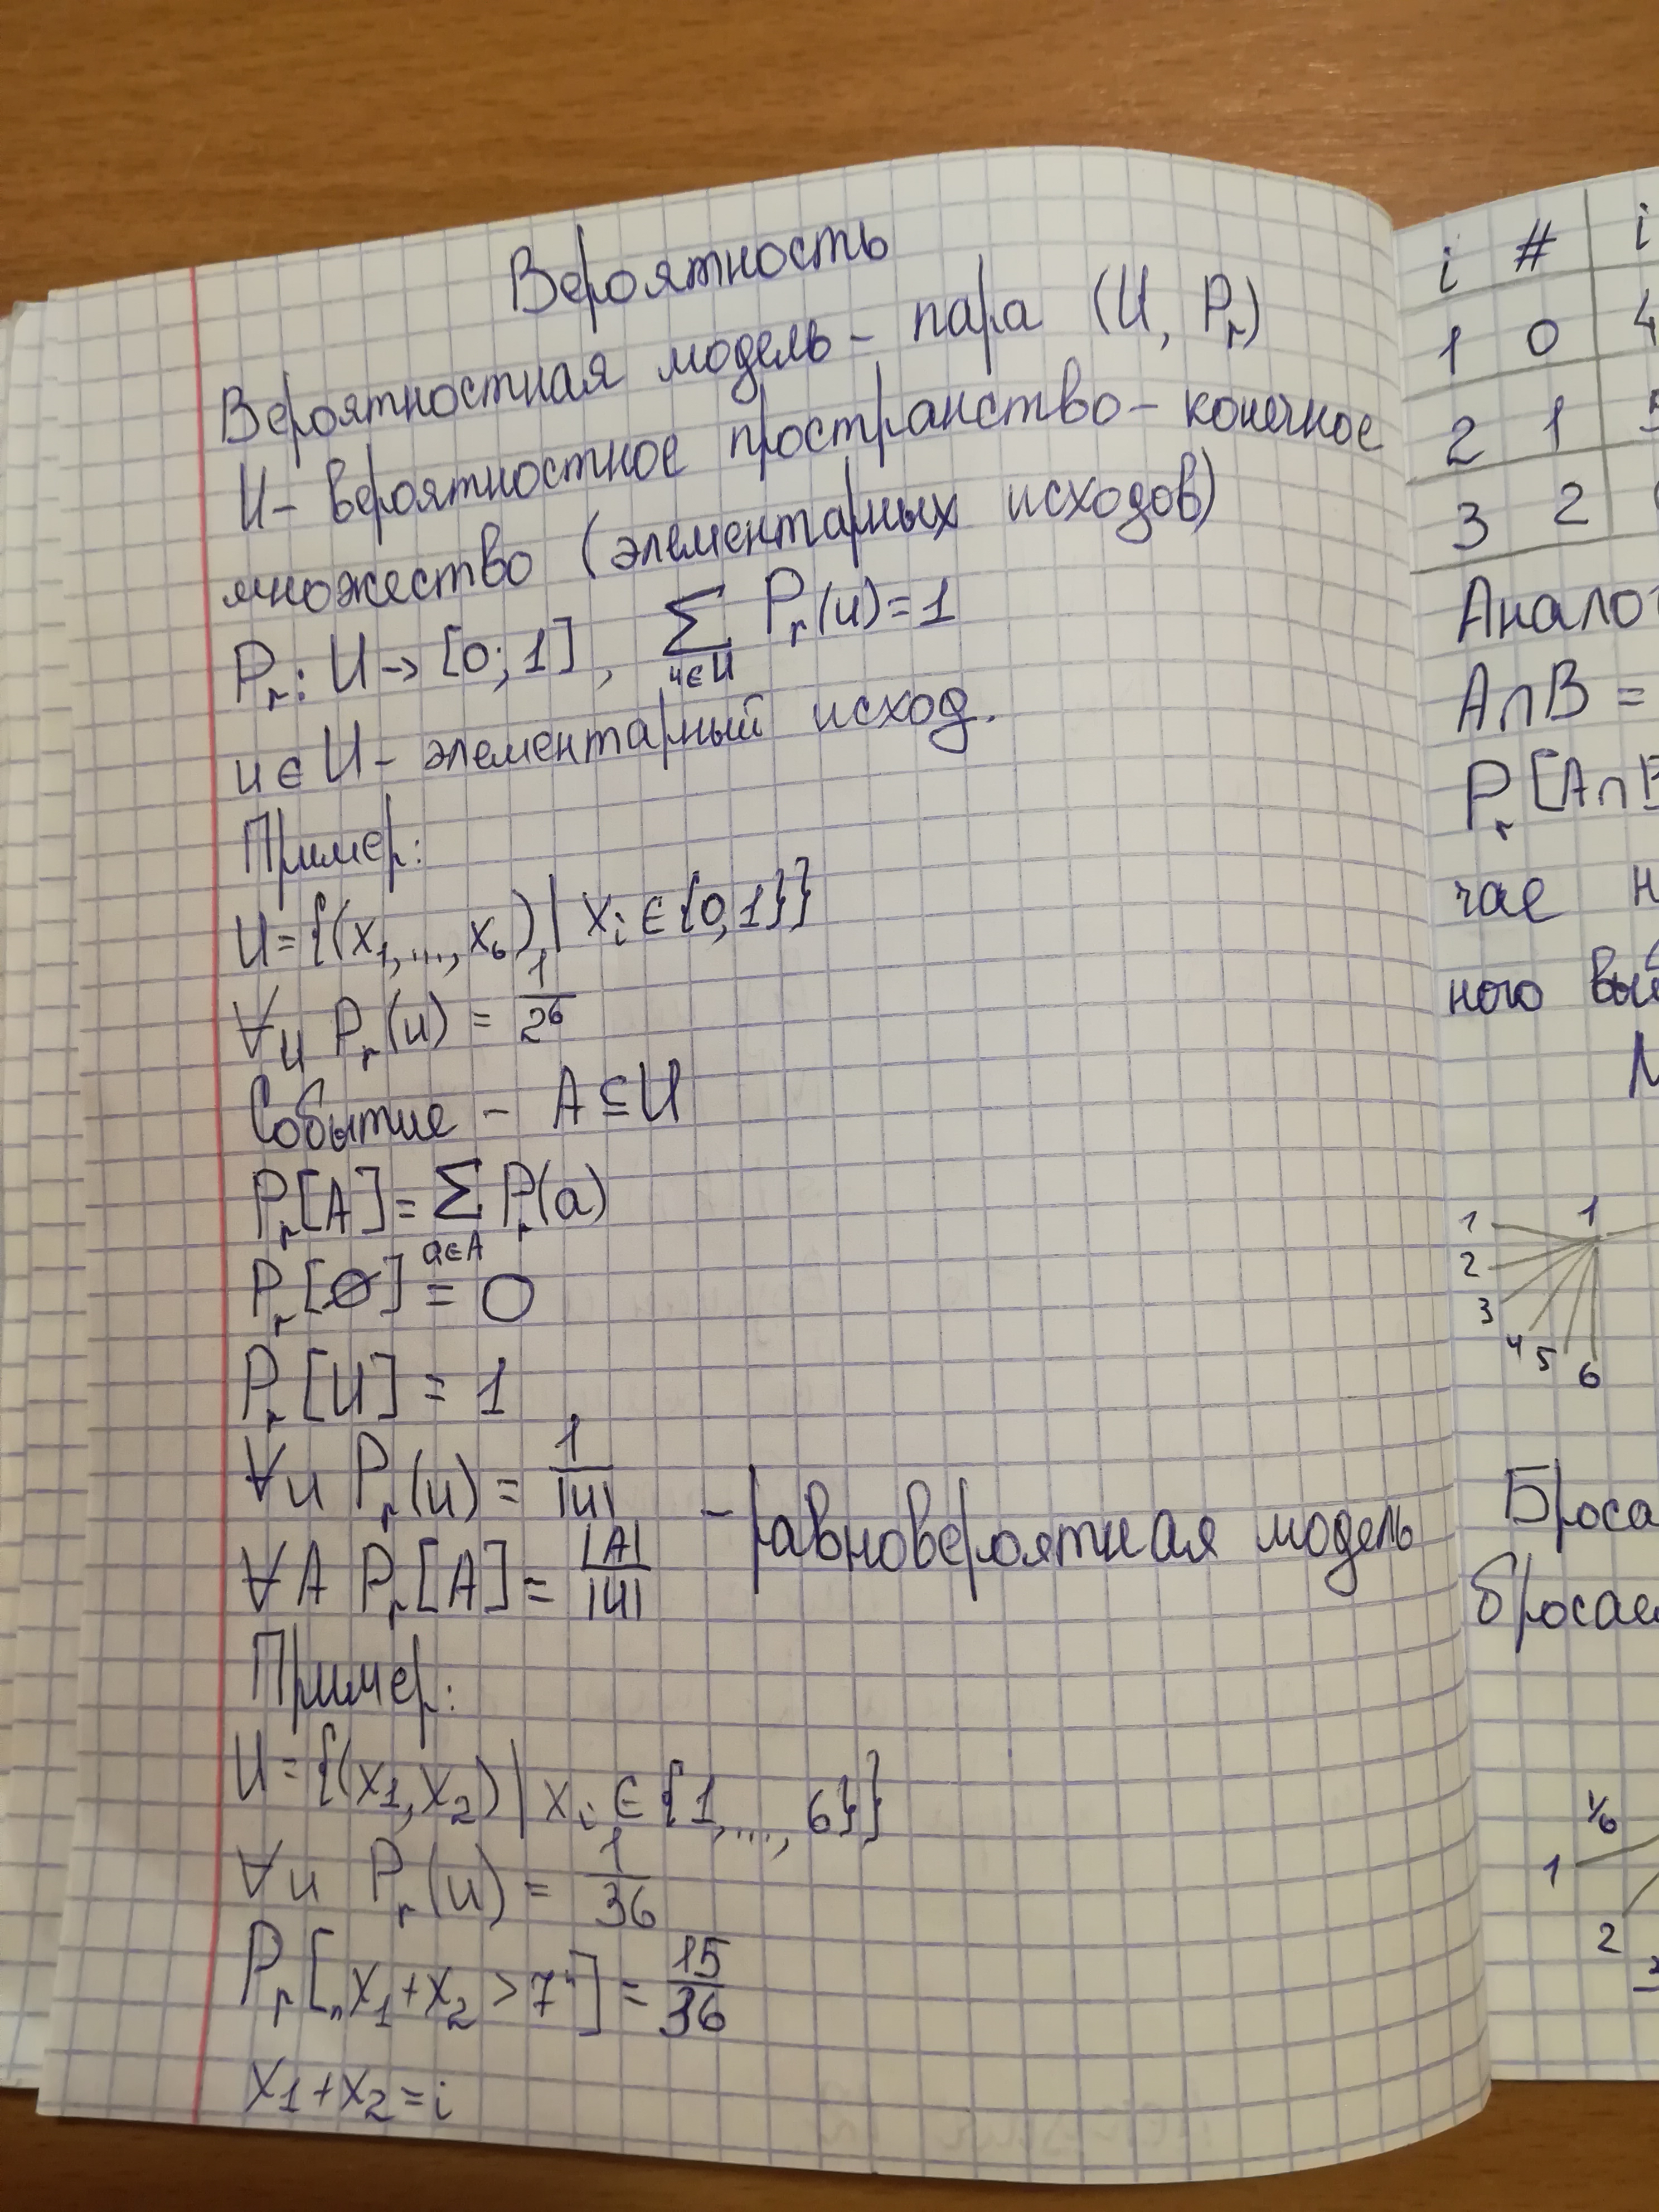 Вероятность
Вероятностная модель - пара (U, Pr)
U - вероятностное пространство - конечное
множество (элементарных исходов)
Pr: U → [0; 1], ∑ Pr(u) = 1
u∈U
u ∈ U - элементарный исход.
Пример:
U = {(x₁, ..., x₆) | xᵢ ∈ {0,1}}
∀u Pr(u) = 1/2⁶
Событие - A ⊆ U
Pr[A] = ∑ Pr(a)
a∈A
Pr[∅] = 0
Pr[U] = 1
∀u Pr(u) = 1/|U|
- равновероятная модель
∀A Pr[A] = |A|/|U|
Пример:
U = {(x₁, x₂) | xᵢ ∈ {1, ..., 6}}
∀u Pr(u) = 1/36
Pr[„x₁ + x₂ > 7"] = 15/36
x₁ + x₂ = i
i # i
1 0 4
2 1 5
3 2
A∩B =
Pr[A∩B
чае н
ного
1 1
2
3
4 5 6
Броса
бросае
1/6
1
2